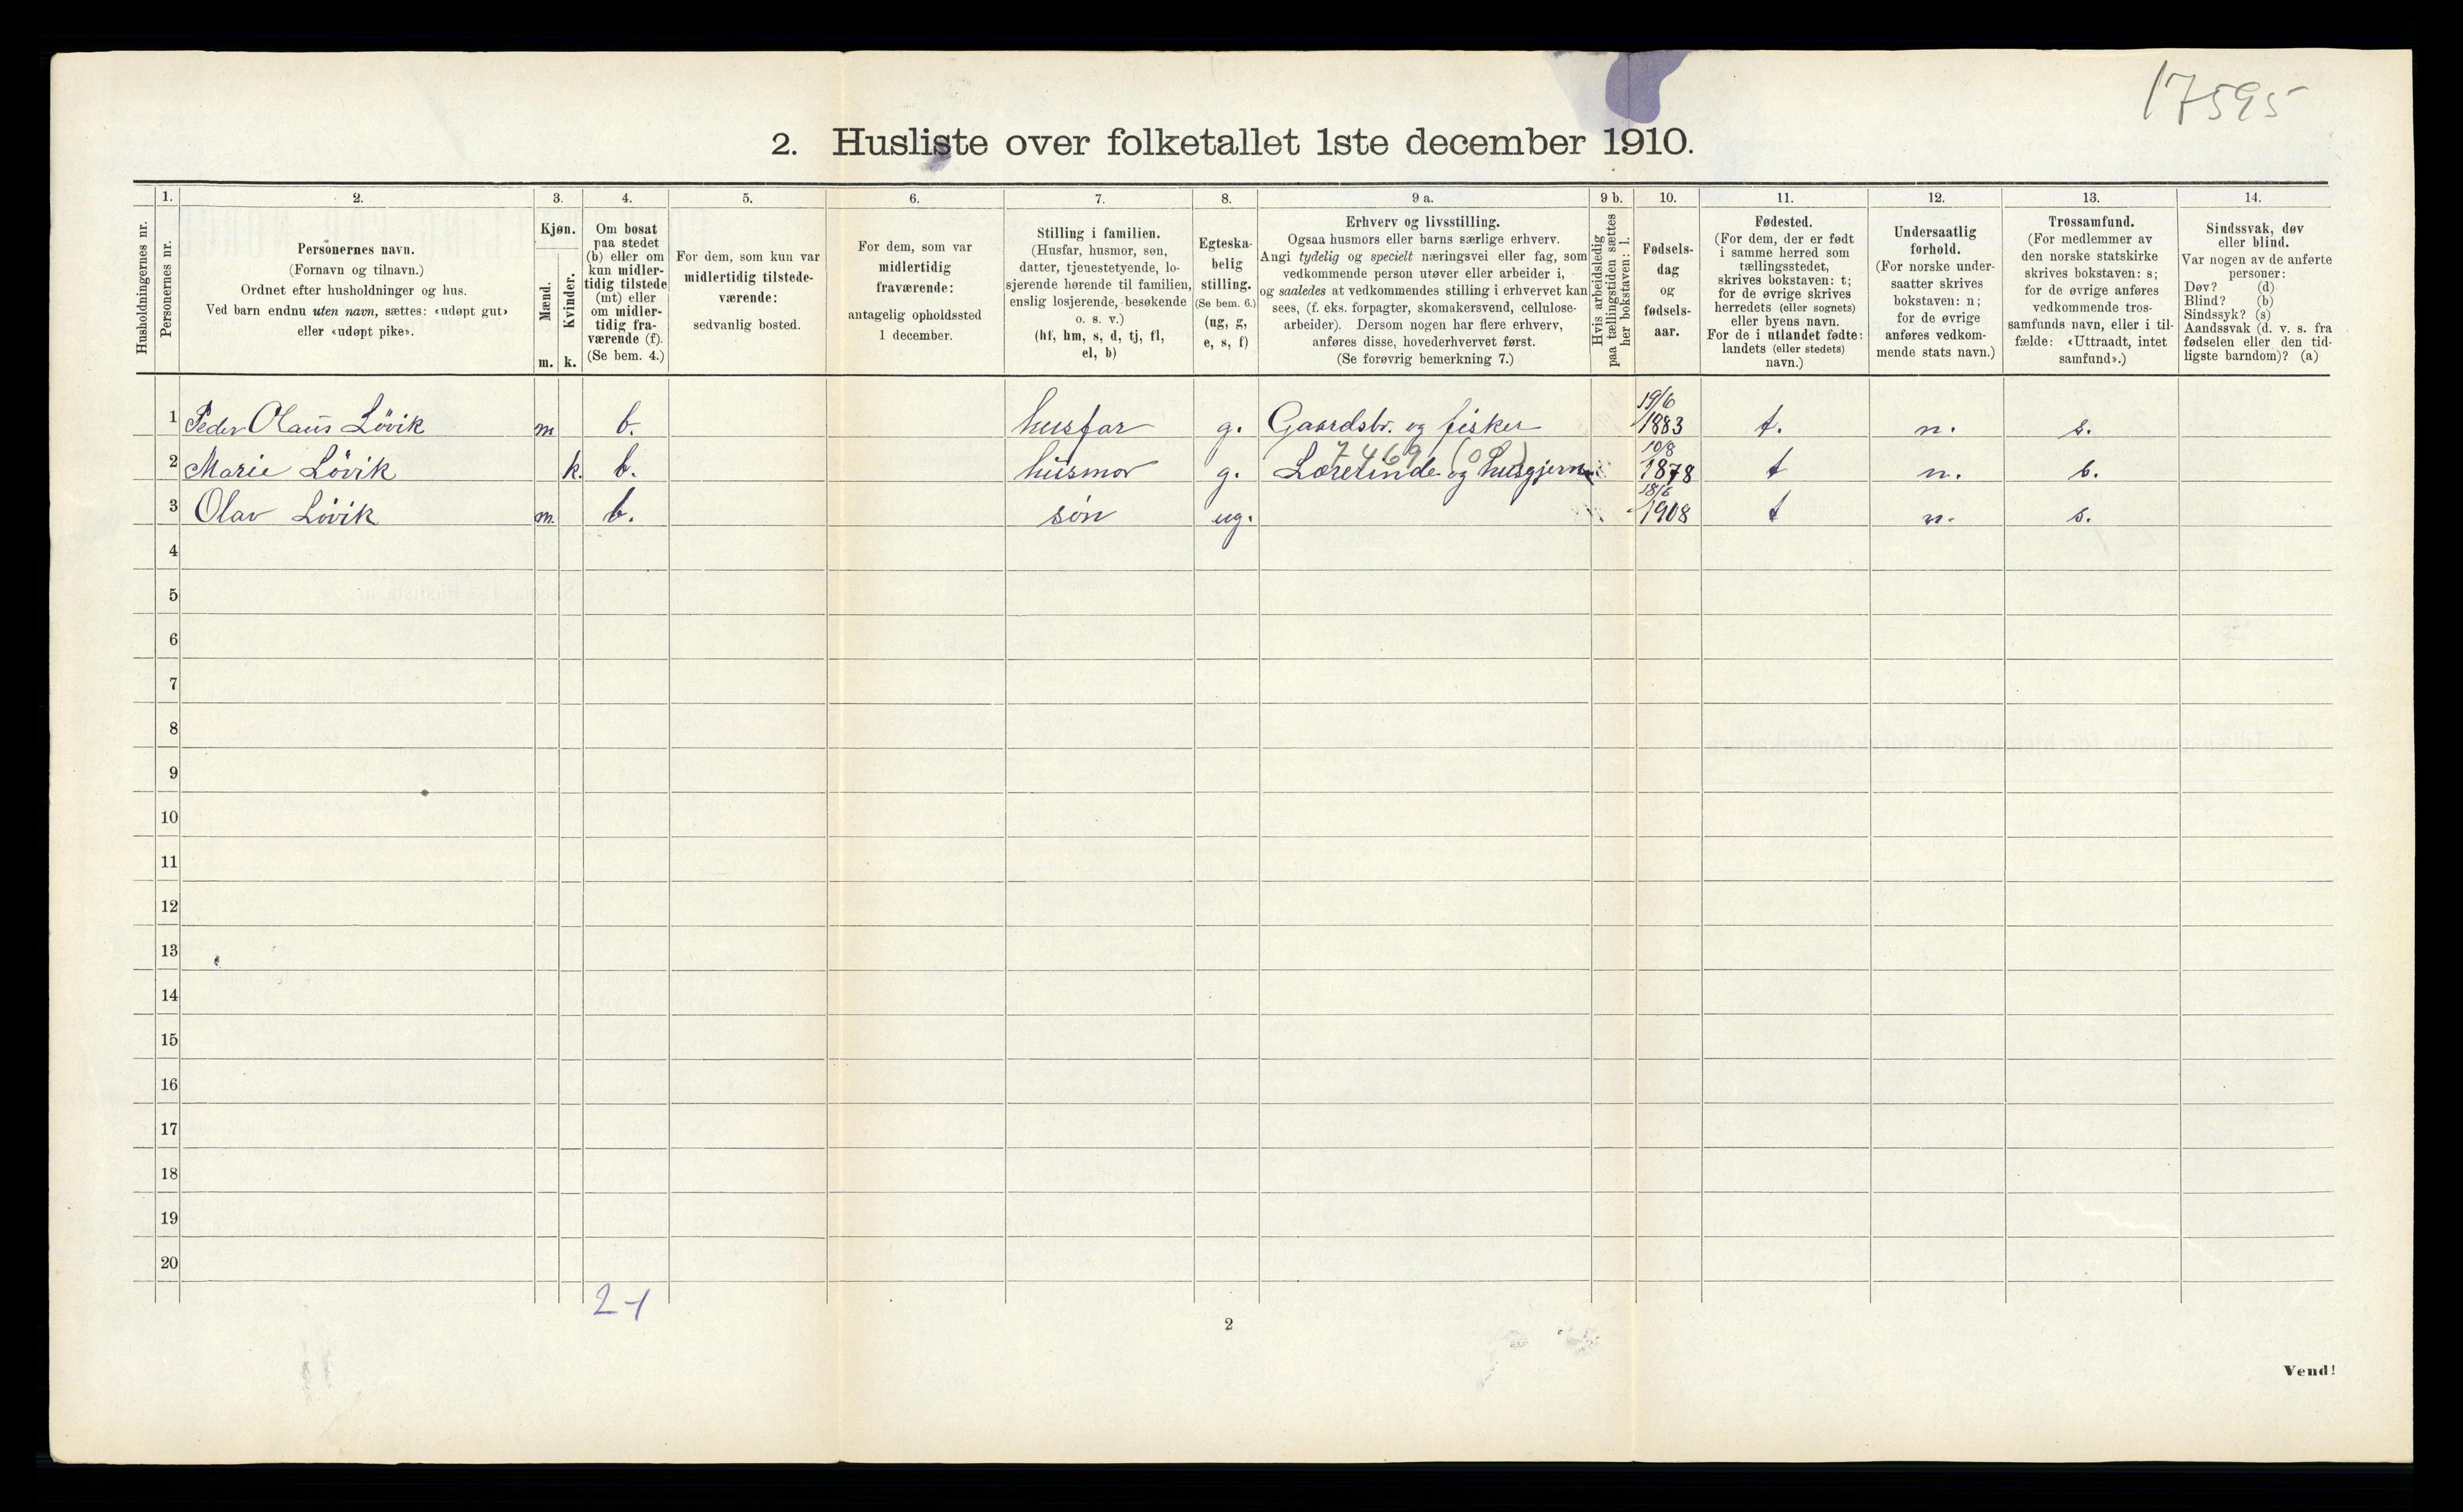 17595
2. Husliste over folketallet 1ste december 1910.
Husholdningernes nr.
1.
Personernes nr.
2.
Personernes navn.
(Fornavn og tilnavn.)
Ordnet efter husholdninger og hus.
Ved barn endnu uten navn, sættes: «udøpt gut»
eller «udøpt pike».
3.
Kjøn.
Mænd.
m.
Kvinder.
k.
4.
Om bosat
paa stedet
(b) eller om
kun midler-
tidig tilstede
(mt) eller
om midler-
tidig fra-
værende (f).
(Se bem. 4.)
5.
For dem, som kun var
midlertidig tilstede-
værende:
sedvanlig bosted.
6.
For dem, som var
midlertidig
fraværende:
antagelig opholdssted
1 december.
7.
Stilling i familien.
(Husfar, husmor, søn,
datter, tjenestetyende, lo-
sjerende hørende til familien,
enslig losjerende, besøkende
o. s. v.)
(hf, hm, s, d, tj, fl,
el, b)
8.
Egteska-
belig
stilling.
(Se bem. 6.)
(ug, g,
e, s, f)
9 a.
Erhverv og livsstilling.
Ogsaa husmors eller barns særlige erhverv.
Angi tydelig og specielt næringsvei eller fag, som
vedkommende person utøver eller arbeider i,
og saaledes at vedkommendes stilling i erhvervet kan
sees, (f. eks. forpagter, skomakersvend, cellulose-
arbeider). Dersom nogen har flere erhverv,
anføres disse, hovederhvervet først.
(Se forøvrig bemerkning 7.)
9 b.
Hvis arbeidsledig
paa tællingstiden sættes
her bokstaven: l.
10.
Fødsels-
dag
og
fødsels-
aar.
11.
Fødested.
(For dem, der er født
i samme herred som
tællingsstedet,
skrives bokstaven: t;
for de øvrige skrives
herredets (eller sognets)
eller byens navn.
For de i utlandet fødte:
landets (eller stedets)
navn.)
12.
Undersaatlig
forhold.
(For norske under-
saatter skrives
bokstaven: n;
for de øvrige
anføres vedkom-
mende stats navn.)
13.
Trossamfund.
(For medlemmer av
den norske statskirke
skrives bokstaven: s;
for de øvrige anføres
vedkommende tros-
samfunds navn, eller i til-
fælde: «Uttraadt, intet
samfund».)
14.
Sindssvak, døv
eller blind.
Var nogen av de anførte
personer:
Døv? (d)
Blind? (b)
Sindssyk? (s)
Aandssvak (d. v. s. fra
fødselen eller den tid-
ligste barndom)? (a)
1 Peder Olaus Lövik m b. husfar g. Gaardsbr. og fisker 19/6 1883 t. n. s.
7469 (01)
2 Marie Lövik k. b. husmor g. Lærerinde og husgjern. 10/8 1878 t n. s.
3 Olav Lövik m. b. sön ug. 18/6 1908 t n. s.
4
5
6
7
8
9
10
11
12
13
14
15
16
17
18
19
20
2-1
2
Vend!